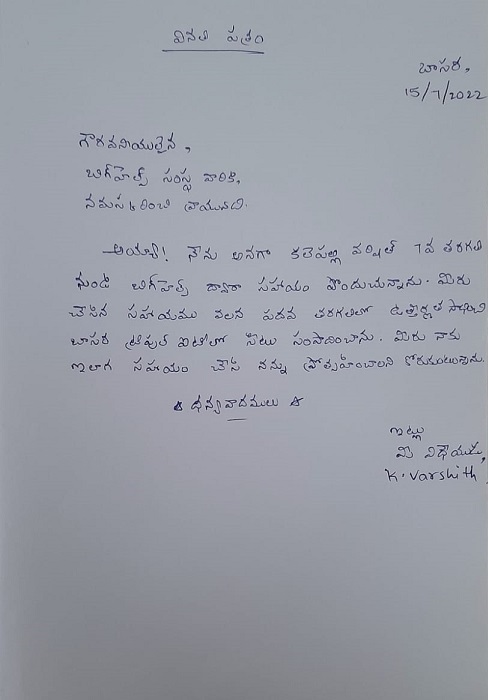 వినతి పత్రం
బాసర,
15/7/2022
గౌరవనీయులైన,
బిగ్‌హెల్ప్ సంస్థ వారికి,
నమస్కరించి వ్రాయునది.
అయ్యా! నేను అనగా కలెపల్లి వర్షిత్ 7వ తరగతి
నుండి బిగ్‌హెల్ప్ ద్వారా సహాయం పొందుచున్నాను. మీరు
చేసిన సహాయము వలన పదవ తరగతిలో ఉత్తీర్ణత సాధించి
బాసర ట్రిపుల్ ఐటిలో సీటు సంపాదించాను. మీరు నాకు
ఇలాగే సహాయం చేసి నన్ను ప్రోత్సహించాలని కోరుకుంటున్నాను.
ధన్యవాదములు
ఇట్లు
మీ విధేయుడు,
K. Varshith